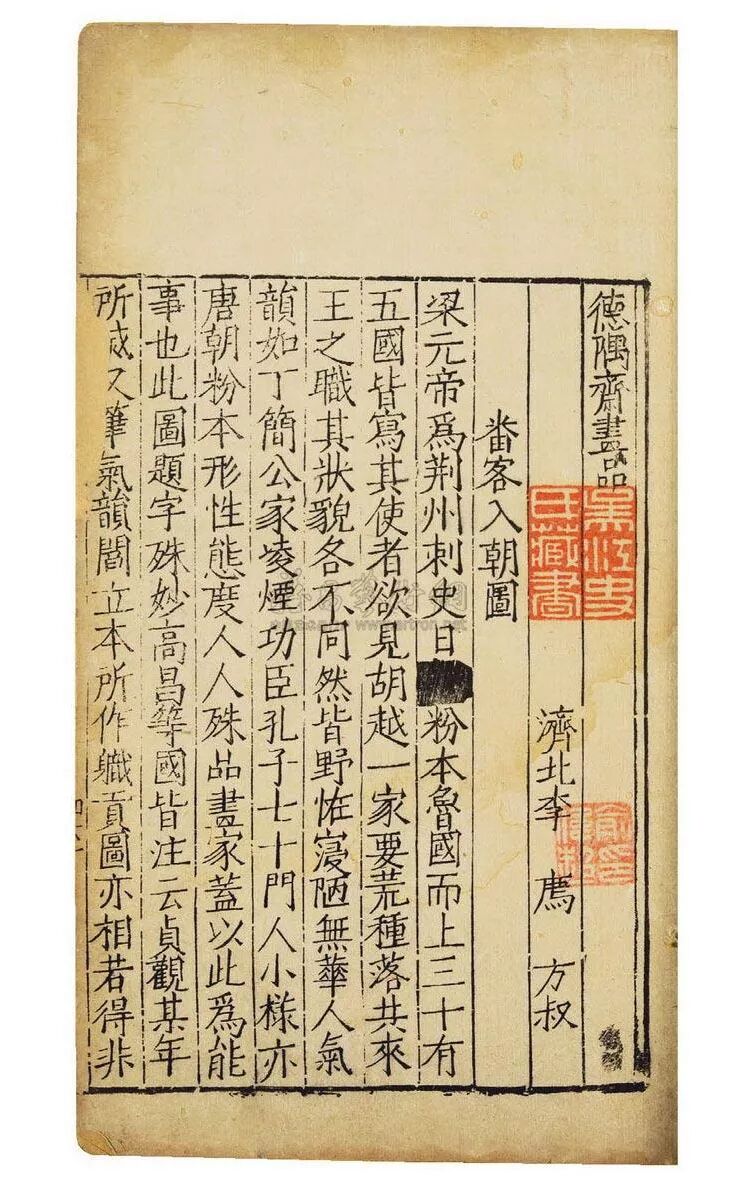 德隅齋畫品
濟北李廌方叔
番客入朝圖
梁元帝爲荆州刺史日粉本魯國而上三十有
五國皆寫其使者欲見胡越一家要荒種落共來
王之職其狀貌各不同然皆野怪寑陋無華人氣
韻如丁簡公家凌煙功臣孔子七十門人小樣亦
唐朝粉本形性態度人人殊品畫家蓋以此爲能
事也此圖題字殊妙高昌等國皆注云貞觀某年
所
又筆氣韻閻立本所作職貢圖亦相若得非
氏藏書